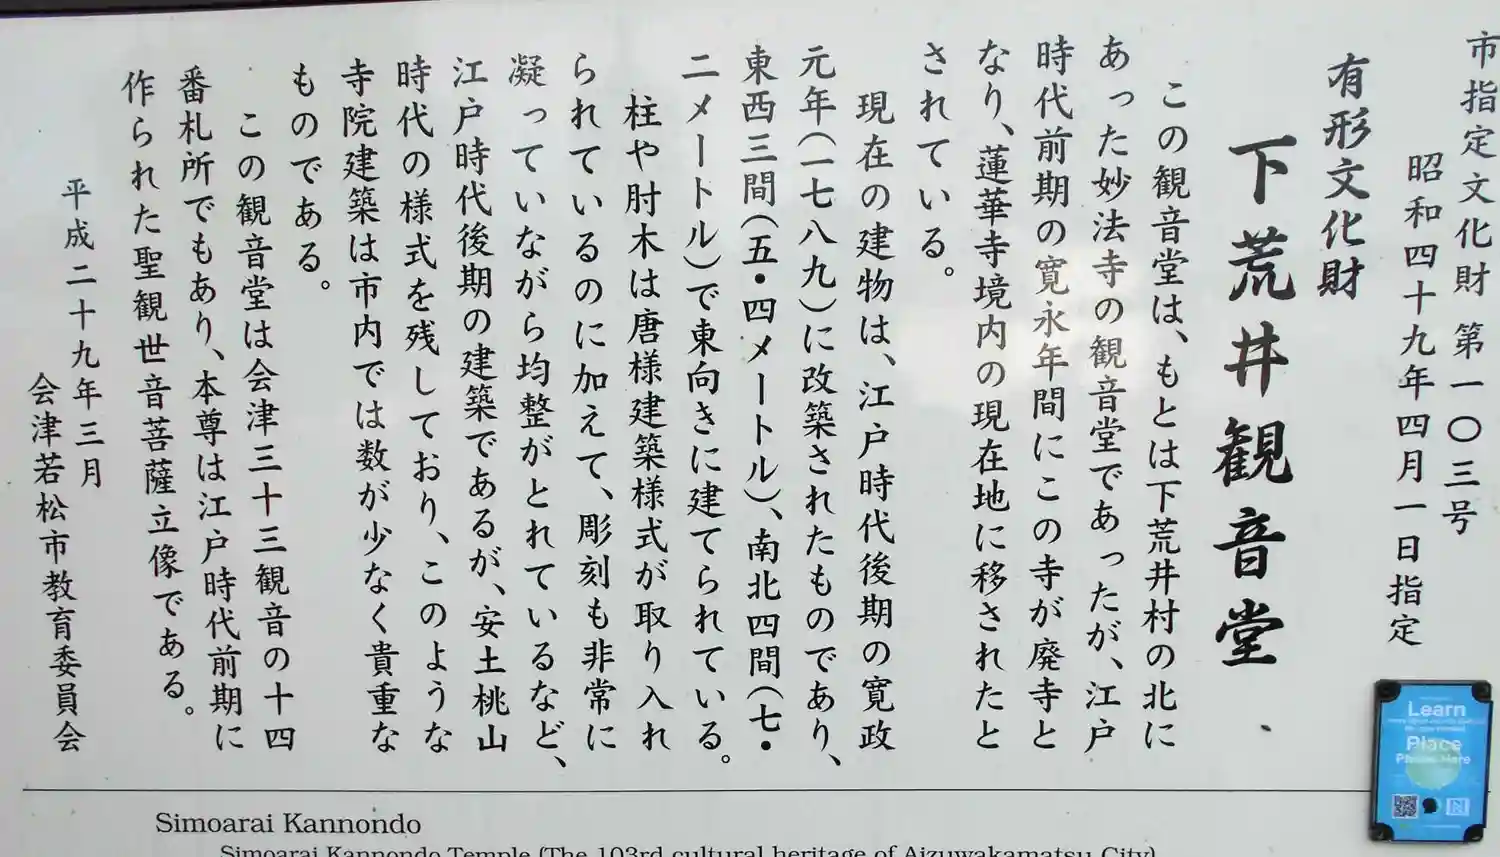 市指定文化財 第一〇三号
昭和四十九年四月一日指定
有形文化財
下荒井観音堂
この観音堂は、もとは下荒井村の北に
あった妙法寺の観音堂であったが、江戸
時代前期の寛永年間にこの寺が廃寺と
なり、蓮華寺境内の現在地に移されたと
されている。
現在の建物は、江戸時代後期の寛政
元年(一七八九)に改築されたものであり、
東西三間(五・四メートル)、南北四間(七・
二メートル)で東向きに建てられている。
柱や肘木は唐様建築様式が取り入れ
られているのに加えて、彫刻も非常に
凝っていながら均整がとれているなど、
江戸時代後期の建築であるが、安土桃山
時代の様式を残しており、このような
寺院建築は市内では数が少なく貴重な
ものである。
この観音堂は会津三十三観音の十四
番札所でもあり、本尊は江戸時代前期に
作られた聖観世音菩薩立像である。
平成二十九年三月
会津若松市教育委員会
Simoarai Kannondo
Simoarai Kannondo Temple (The 103rd cultural heritage of Aizuwakamatsu City)
Learn
Place
Phone Here